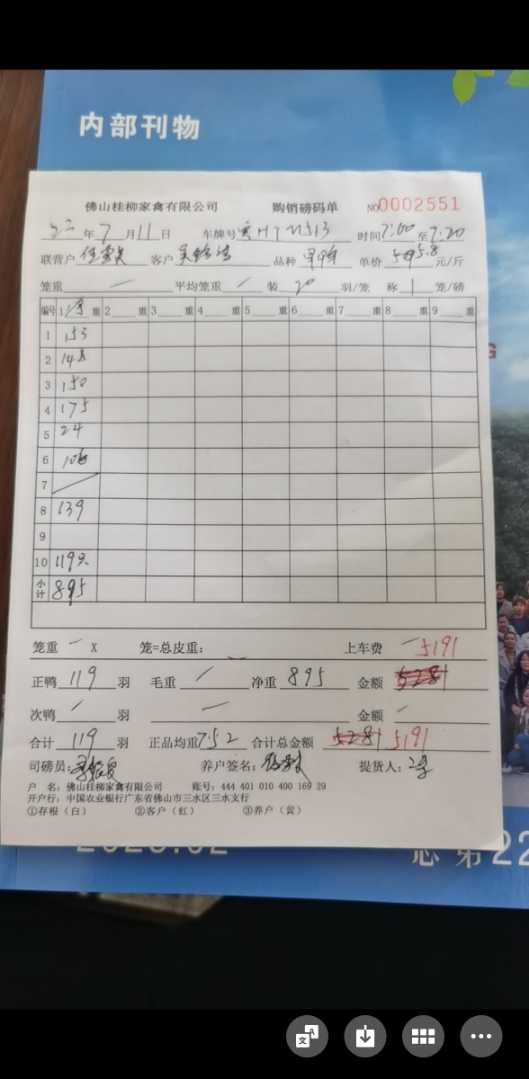 内部刊物
佛山桂柳家禽有限公司 购销磅码单 NO0002551
年7月11日 车牌号 时间7:00至7:20
联营户 客户 品种 单价 5.8元/斤
笼重 一 平均笼重 装20羽/笼 称1笼/磅
编号 1 重 2 重 3 重 4 重 5 重 6 重 7 重 8 重 9 重
1 153
2 148
3 150
4 175
5 24
6 106
7
8 139
9
10 119只
小计 895
笼重 一 X 笼=总皮重: 上车费 一 5191
正鸭 119 羽 毛重 净重 895 金额 5281
次鸭 羽 一 金额
合计 119 羽 正品均重 7.52 合计总金额 5281 5191
司磅员: 养户签名: 提货人:
户 名: 佛山桂柳家禽有限公司 账号: 444 401 010 400 169 29
开户行: 中国农业银行广东省佛山市三水区三水支行
①存根(白) ②客户(红) ③养户(黄)
总 第22